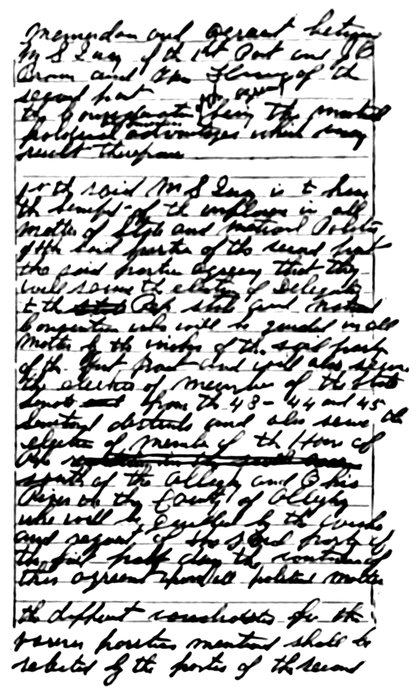 Memorandum and agreement between
M S Quay of the 1st Part and J O
Brown and Wm Flinn of the
second part
the consideration of this agreement being the mutual
political advantages which may
result therefrom

1st the said M S Quay is to have
the benefit of the influence in all
matters of State and national Politics
of the said parties of the second part
the said parties agreeing that they
will secure the election of Delegates
to the state Rep State and National
Convention who will be guided in all
matters by the wishes of the said party
of the first part and will also secure
the election of members of the state
Senate and from the 43 - 44 and 45
Senatorial districts and also secure the
election of members of the House of
Rep
south of the Allegheny and Ohio
Rivers in the County of Allegheny
who will be guided by the wishes
and request of the said party of
the first part during the continuance of
this agreement upon all political matters

the different candidates for the
various positions mentioned shall be
selected by the parties of the second